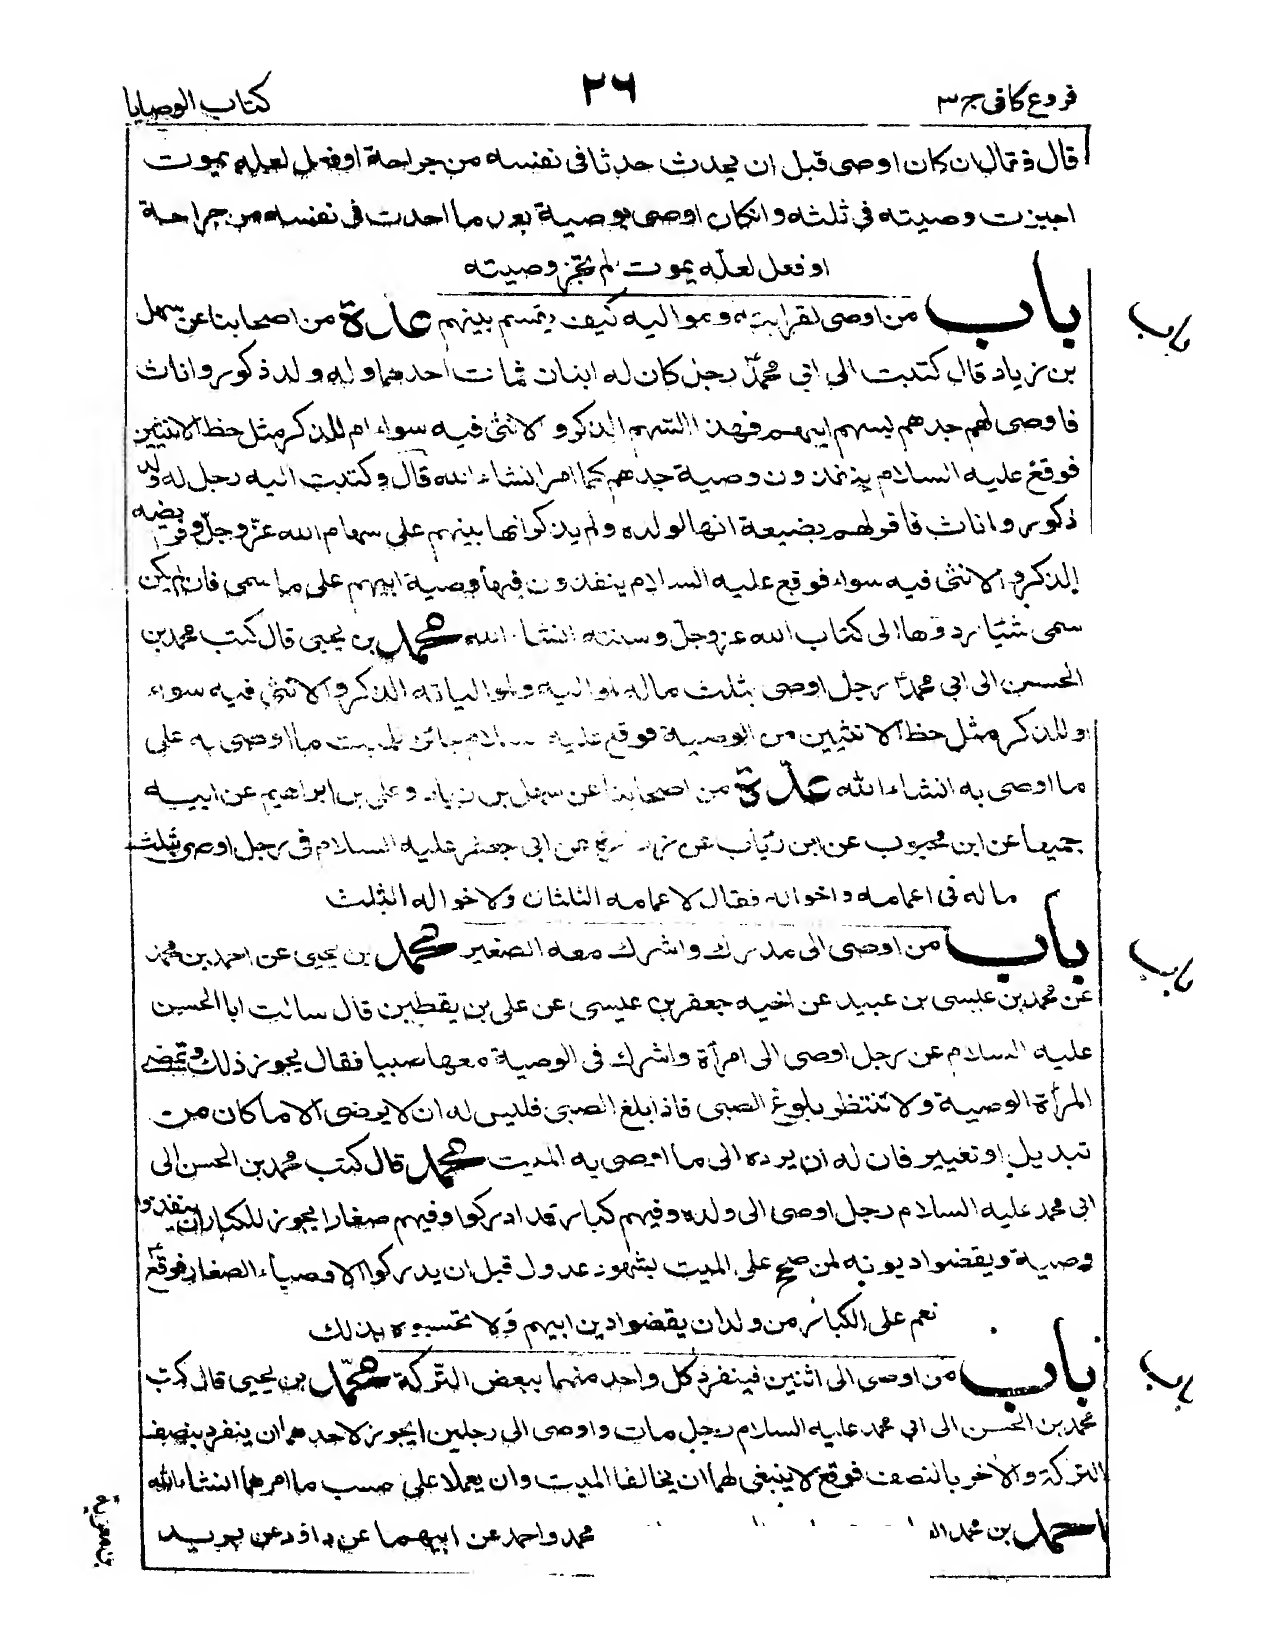 فروع كافى ج ٣
٢٦
كتاب الوصايا
قال فقال ان كان اوصى قبل ان يحدث حدثا فى نفسه من جراحة او فعل لعله يموت
اجيزت وصيته فى ثلثه وانكان اوصى بوصية بعد ما احدث فى نفسه من جراحة
او فعل لعله يموت لم تجز وصيته
باب من اوصى لقراباته ومواليه كيف يقسم بينهم عدة من اصحابنا عن سهل
بن زياد قال كتبت الى ابى محمد رجل كان له ابنان فمات احدهما وله ولد ذكور واناث
فاوصى لهم جدهم بسهم ابيهم فهذا السهم الذكر والانثى فيه سواء ام للذكر مثل حظ الانثيين
فوقع عليه السلام ينفذون وصية جدهم كما امر انشاء الله قال وكتبت اليه رجل له ولد
ذكور واناث فاقر لهم بضيعة انها لولده ولم يذكر انها بينهم على سهام الله عز وجل وفرايضه
الذكر والانثى فيه سواء فوقع عليه السلام ينفذون فيها وصية ابيهم على ما سمى فان لم يكن
سمى شيئا ردوها الى كتاب الله عز وجل وسنته انشاء الله محمد بن يحيى قال كتب محمد بن
الحسن الى ابى محمد رجل اوصى بثلث ماله لمواليه ولمولياته الذكر والانثى فيه سواء
او للذكر مثل حظ الانثيين من الوصية فوقع عليه السلام جائز للميت ما اوصى به على
ما اوصى به انشاء الله عدة من اصحابنا عن سهل بن زياد وعلى بن ابراهيم عن ابيه
جميعا عن ابن محبوب عن ابن رئاب عن زرارة عن ابى جعفر عليه السلام فى رجل اوصى بثلث
ماله فى اعمامه واخواله فقال لاعمامه الثلثان ولاخواله الثلث
باب من اوصى الى مدرك واشرك معه الصغير محمد بن يحيى عن احمد بن محمد
عن محمد بن عيسى بن عبيد عن اخيه جعفر بن عيسى عن على بن يقطين قال سالت ابا الحسين
عليه السلام عن رجل اوصى الى امرأة واشرك فى الوصية معها صبيا فقال يجوز ذلك وتمضى
المرأة الوصية ولا تنتظر بلوغ الصبى فاذا بلغ الصبى فليس له ان لا يرضى الا ما كان من
تبديل او تغيير فان له ان يرده الى ما اوصى به الميت محمد قال كتب محمد بن الحسن الى
ابى محمد عليه السلام رجل اوصى الى ولده وفيهم كبار قد ادركوا وفيهم صغار ايجوز للكبار ان ينفذوا
وصية ويقضوا ديونه لمن صح على الميت بشهود عدول قبل ان يدركوا الاوصياء الصغار فوقع
نعم على الكبائر من ولد ان يقضوا دين ابيهم ولا يحتسبوه بذلك
باب من اوصى الى اثنين فينفرد كل واحد منهما ببعض التركة محمد بن يحيى قال كتب
محمد بن الحسن الى ابى محمد عليه السلام رجل مات واوصى الى رجلين ايجوز لاحدهما ان ينفرد بنصف
التركة والاخر بالنصف فوقع لا ينبغى لهما ان يخالفا الميت وان يعملا على حسب ما امرهما انشاء الله
احمد بن محمد محمد واحمد عن ابيهما عن داود عن يزيد
باب
باب
باب